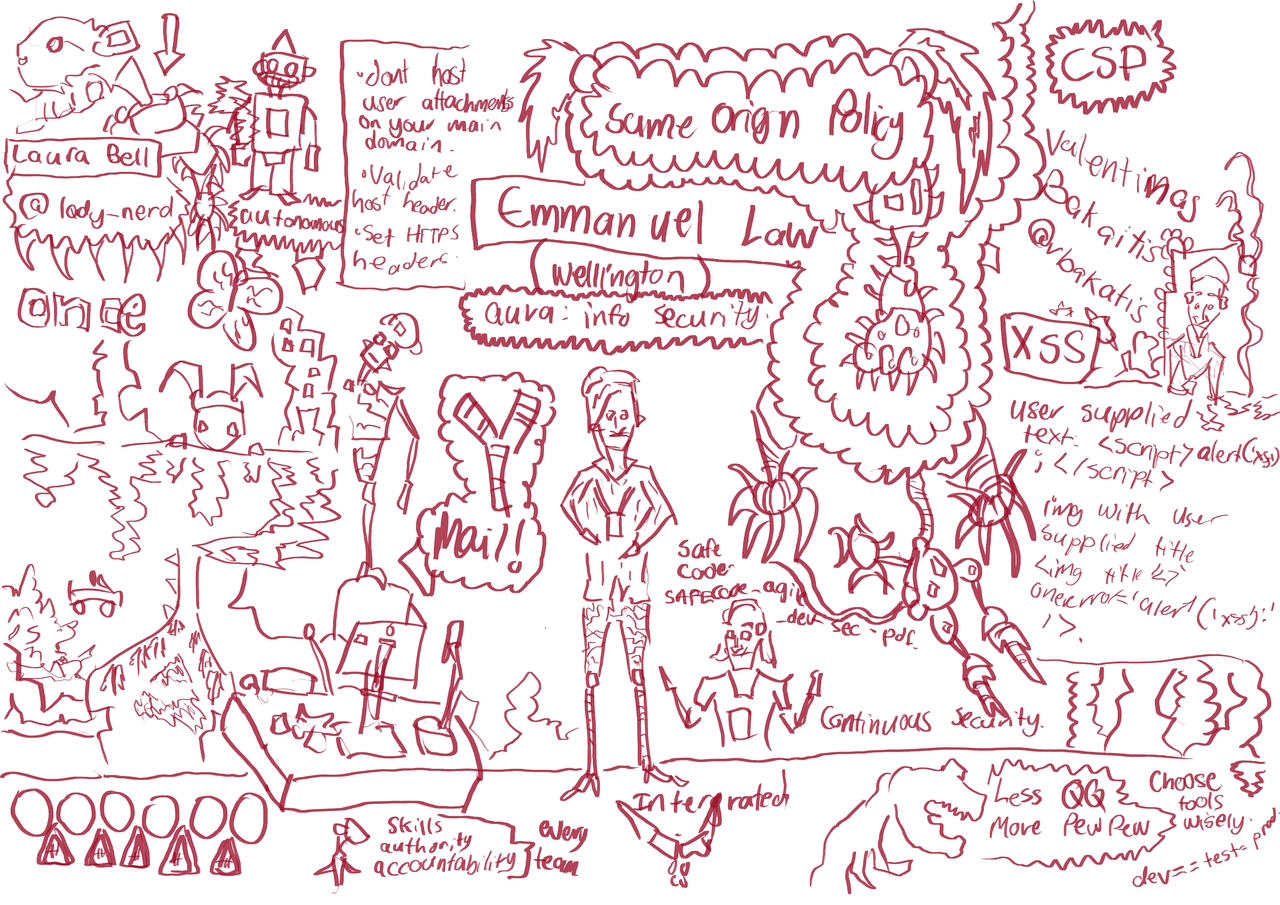 Laura Bell
@ lady-nerd
autonomous
once
•dont host
user attachments
on your main
domain.
•Validate
host header.
•Set HTTPS
headers.
Same Orign Policy
Emmanuel Law
Wellington
aura: info security.
CSP
Valentinas
Bakaitis
@vbakaitis
XSS
user supplied
text. <script>alert('xss')
;</script>
img with user
supplied title
<img title <>
onerror='alert('xss');'
/>.
Mail!
Safe
code-
SAFECODE-agile
-dev-sec-pdf.
Continuous Security.
Intergrated
Skills
authority
accountability
every
team
Less QQ
More PewPew
Choose
tools
wisely.
dev==test=prod.
# # # # #